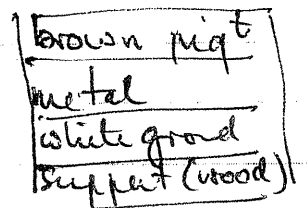 brown pigt
metal
white grond
support (wood)